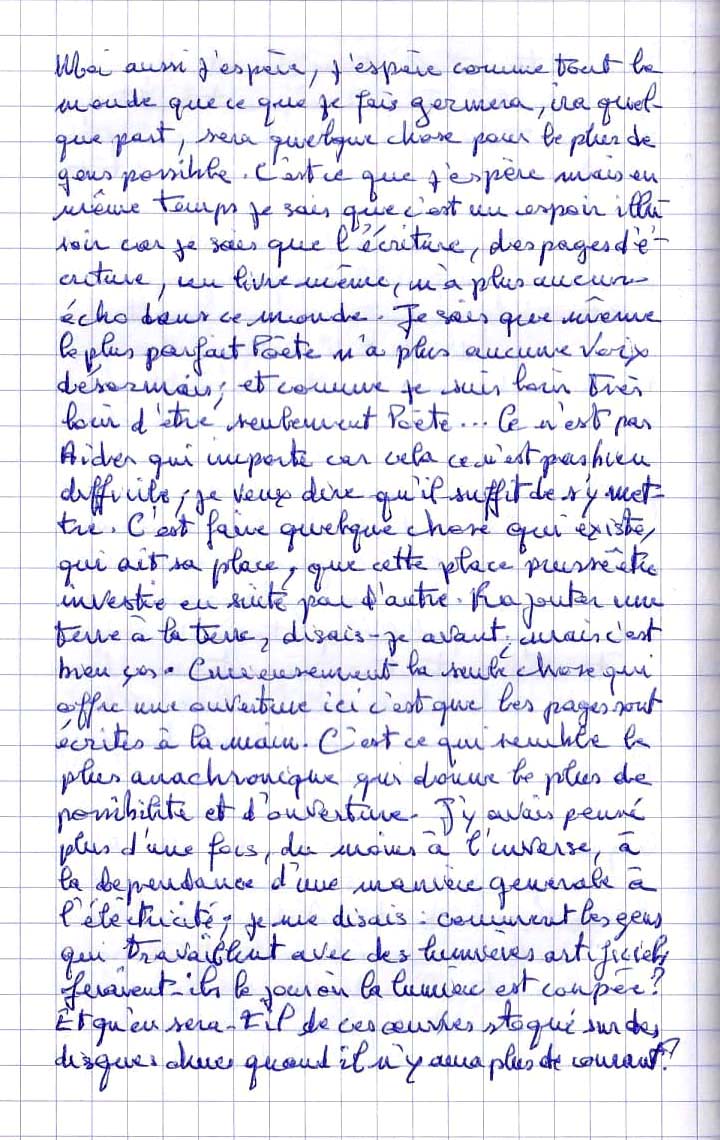 Moi aussi j'espère, j'espère comme tout le
monde que ce que je fais germera, ira quel-
que part, sera quelque chose pour le plus de
gens possible. C'est ce que j'espère mais en
même temps je sais que c'est un espoir illu
soir car je sais que l'écriture, des pages d'é-
criture, un livre même, n'a plus aucun
écho dans ce monde. Je sais que même
le plus parfait Poète n'a plus aucune voix
désormais; et comme je suis loin très
loin d'être seulement Poète... Ce n'est pas
Aider qui importe car cela ce n'est pas bien
difficile, je veux dire qu'il suffit de s'y met-
tre. C'est faire quelque chose qui existe,
qui ait sa place, que cette place puisse être
investie ensuite par d'autre. Rajouter une
terre à la terre, disais-je avant, mais c'est
bien ça. Curieusement la seule chose qui
offre une ouverture ici c'est que les pages sont
écrites à la main. C'est ce qui semble le
plus anachronique qui donne le plus de
possibilité et d'ouverture. J'y avais pensé
plus d'une fois, du moins à l'inverse, à
la dépendance d'une manière générale à
l'électricité; je me disais : comment les gens
qui travaillent avec des lumières artificiels
feraient-ils le jour où la lumière est coupée?
Et qu'en sera-t-il de ces œuvres stoqué sur des
disques durs quand il n'y aura plus de courant?